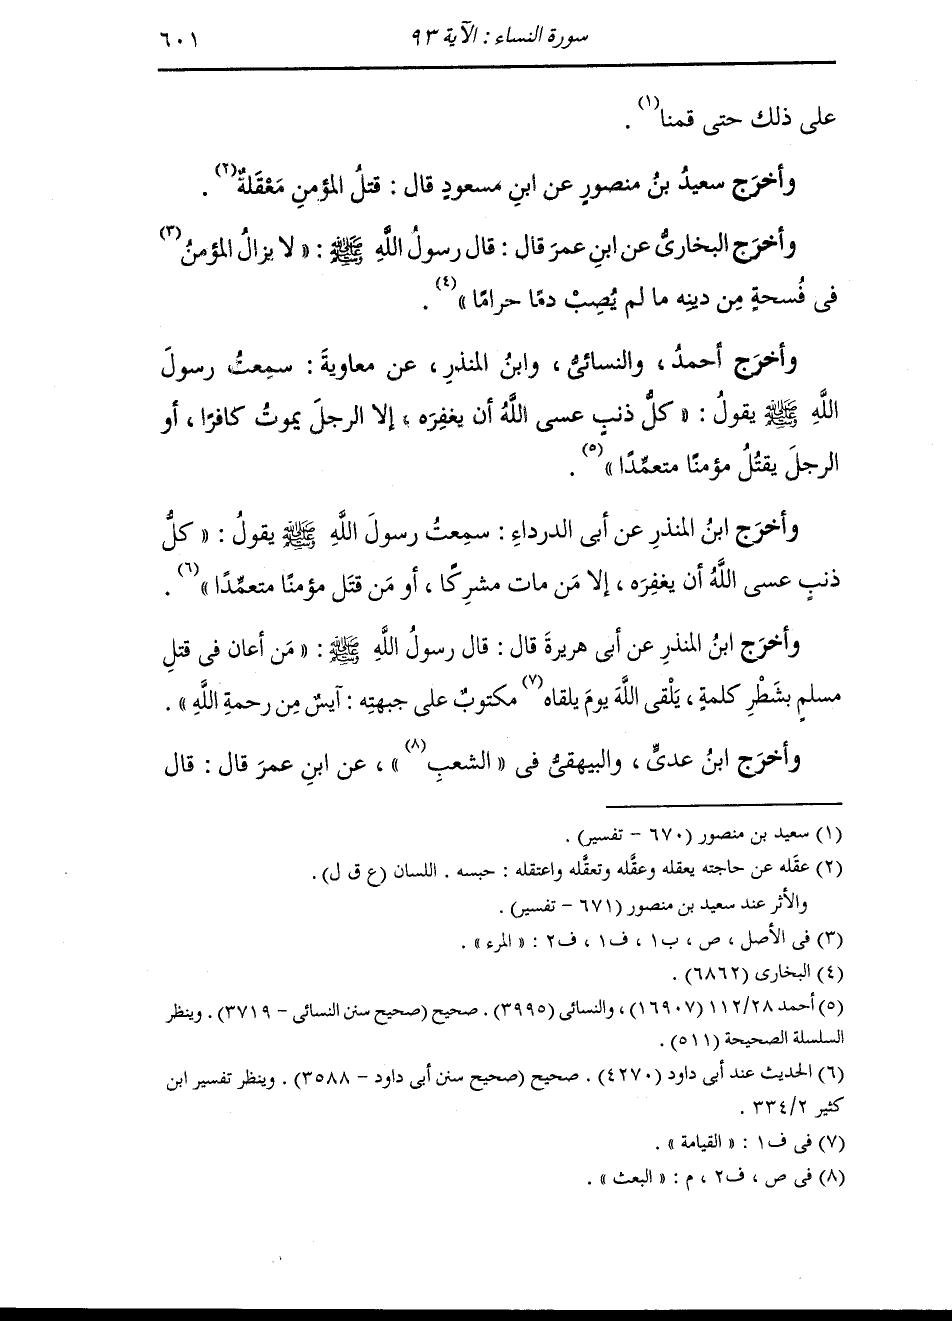 سورة النساء : الآية ٩٣ ٦٠١
على ذلك حتى قمنا(١) .
وأخرَج سعيدُ بنُ منصورٍ عن ابنِ مسعودٍ قال : قتلُ المؤمنِ مَعْقَلةٌ(٢) .
وأخرَج البخارىُّ عن ابنِ عمرَ قال : قال رسولُ اللَّهِ ﷺ : « لا يزالُ المؤمنُ(٣)
فى فُسحةٍ مِن دينِه ما لم يُصِبْ دمًا حرامًا »(٤) .
وأخرَج أحمدُ ، والنسائىُّ ، وابنُ المنذرِ ، عن معاويةَ : سمِعتُ رسولَ
اللَّهِ ﷺ يقولُ : « كلُّ ذنبٍ عسى اللَّهُ أن يغفِرَه ؛ إلا الرجلَ يموتُ كافرًا ، أو
الرجلَ يقتُلُ مؤمنًا متعمِّدًا »(٥) .
وأخرَج ابنُ المنذرِ عن أبى الدرداءِ : سمِعتُ رسولَ اللَّهِ ﷺ يقولُ : « كلُّ
ذنبٍ عسى اللَّهُ أن يغفِرَه ، إلا مَن مات مشرِكًا ، أو مَن قتَل مؤمنًا متعمِّدًا »(٦) .
وأخرَج ابنُ المنذرِ عن أبى هريرةَ قال : قال رسولُ اللَّهِ ﷺ : « مَن أعان فى قتلِ
مسلمٍ بشَطْرِ كلمةٍ ، يَلْقى اللَّهَ يومَ يلقاه(٧) مكتوبٌ على جبهتِه : آيسٌ مِن رحمةِ اللَّهِ » .
وأخرَج ابنُ عدىٍّ ، والبيهقىُّ فى « الشعبِ(٨) » ، عن ابنِ عمرَ قال : قال
(١) سعيد بن منصور (٦٧٠ - تفسير) .
(٢) عقَله عن حاجته يعقله وعقَّله وتعقَّله واعتقله : حبسه . اللسان (ع ق ل) .
والأثر عند سعيد بن منصور (٦٧١ - تفسير) .
(٣) فى الأصل ، ص ، ب١ ، ف١ ، ف٢ : « المرء » .
(٤) البخارى (٦٨٦٢) .
(٥) أحمد ١١٢/٢٨ (١٦٩٠٧) ، والنسائى (٣٩٩٥) . صحيح (صحيح سنن النسائى - ٣٧١٩) . وينظر
السلسلة الصحيحة (٥١١) .
(٦) الحديث عند أبى داود (٤٢٧٠) . صحيح (صحيح سنن أبى داود - ٣٥٨٨) . وينظر تفسير ابن
كثير ٣٣٤/٢ .
(٧) فى ف١ : « القيامة » .
(٨) فى ص ، ف٢ ، م : « البعث » .